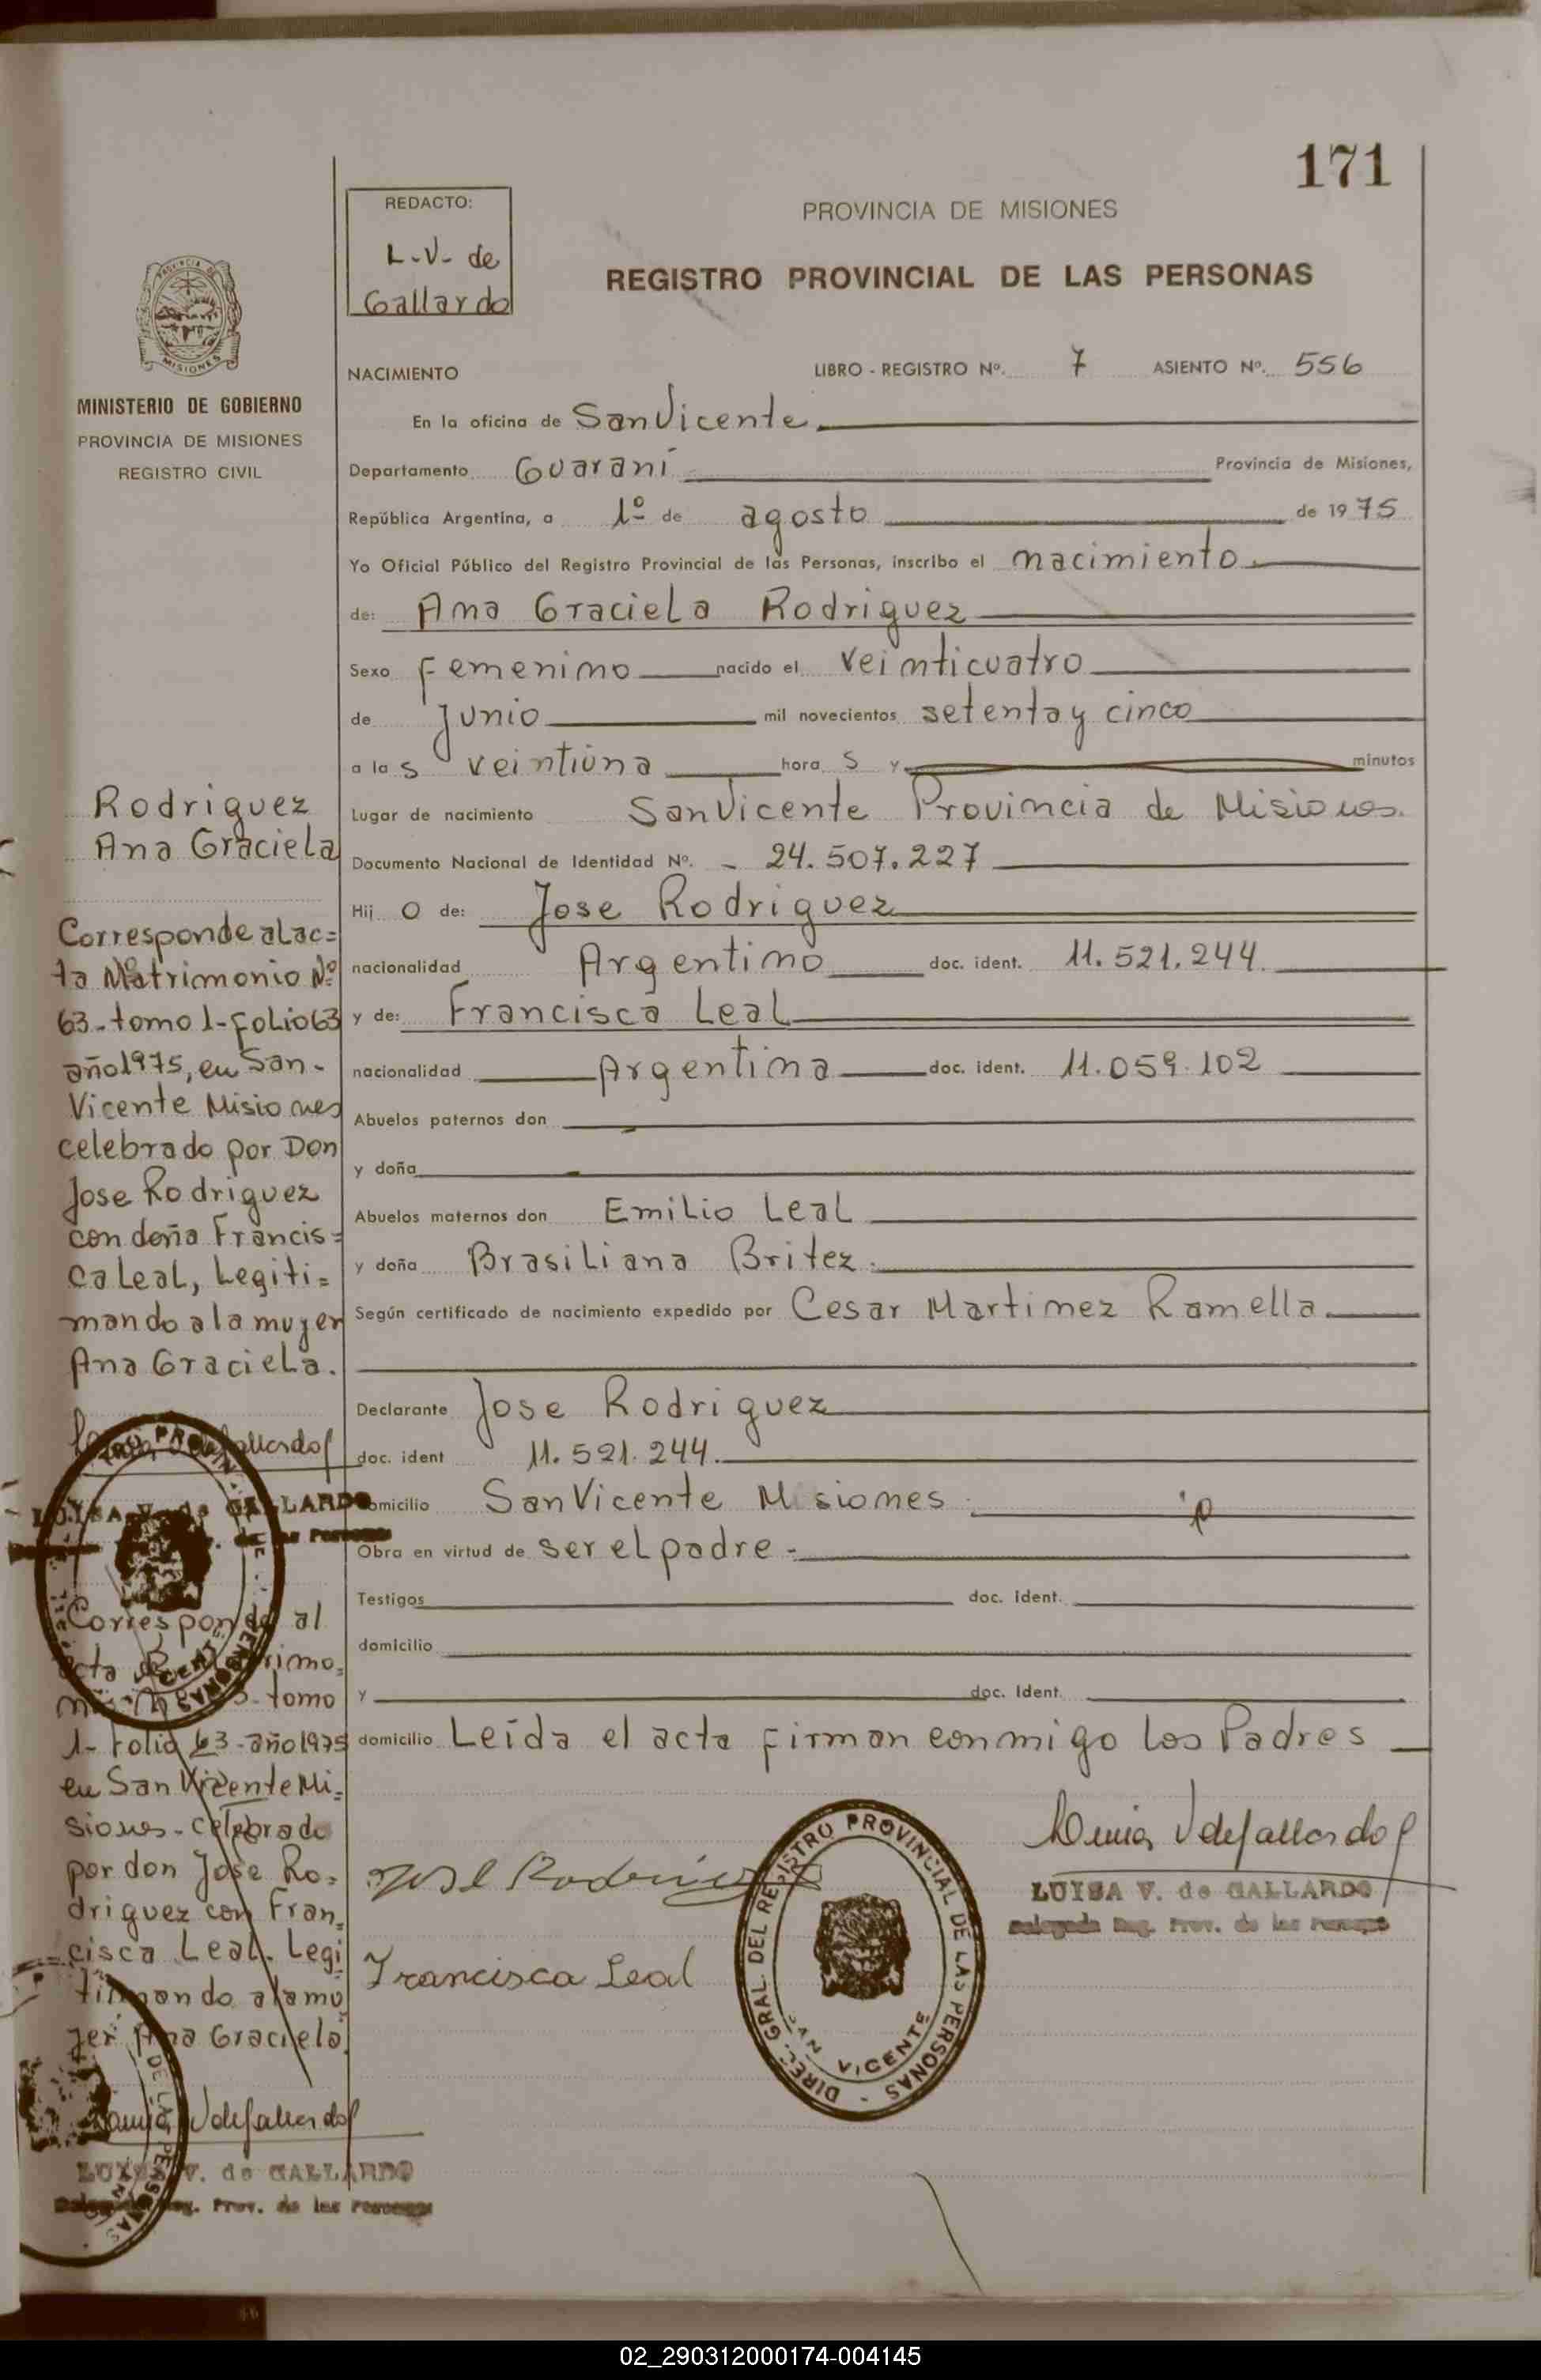 171
REDACTO:
L-V- de
Gallardo
PROVINCIA DE MISIONES
REGISTRO PROVINCIAL DE LAS PERSONAS
PROVINCIA DE
MISIONES
MINISTERIO DE GOBIERNO
PROVINCIA DE MISIONES
REGISTRO CIVIL
NACIMIENTO LIBRO - REGISTRO Nº. 7 ASIENTO Nº. 556
En la oficina de San Vicente
Departamento Guaraní Provincia de Misiones,
República Argentina, a 1º de agosto de 1975
Yo Oficial Público del Registro Provincial de las Personas, inscribo el nacimiento
de: Ana Graciela Rodriguez
Sexo Femenino nacido el veinticuatro
de Junio mil novecientos setenta y cinco
a las veintiúna horas y minutos
Lugar de nacimiento San Vicente Provincia de Misiones.
Documento Nacional de Identidad Nº. - 24.507.227
Hijo de: Jose Rodriguez
nacionalidad Argentino doc. ident. 11.521.244
y de: Francisca Leal
nacionalidad Argentina doc. ident. 11.059.102
Abuelos paternos don
y doña
Abuelos maternos don Emilio Leal
y doña Brasiliana Britez.
Según certificado de nacimiento expedido por Cesar Martinez Ramella
Declarante Jose Rodriguez
doc. ident 11.521.244.
domicilio San Vicente Misiones
Obra en virtud de ser el padre -
Testigos doc. ident.
domicilio
y doc. Ident.
domicilio Leída el acta firman conmigo los Padres
Jose Rodriguez
Francisca Leal
DIREC. GRAL. DEL REGISTRO PROVINCIAL DE LAS PERSONAS -
SAN VICENTE
LUISA V. de GALLARDO
Delegada Reg. Prov. de las Personas
Rodriguez
Ana Graciela
Corresponde al ac=
ta Matrimonio Nº
63-tomo 1-folio 63
año 1975, en San-
Vicente Misiones
celebrado por Don
Jose Rodriguez
con doña Francis=
ca Leal, Legiti=
mando a la mujer
Ana Graciela.
LUISA V. de GALLARDO
de las Personas
Corresponde al
acta de Matrimo=
tomo
1- folio 63-año 1975
en San Vicente Mi=
siones- celebrado
por don Jose Ro=
driguez con Fran=
cisca Leal. Legi
timando a la mu
jer Ana Graciela.
LUISA V. de GALLARDO
Delegada Reg. Prov. de las Personas
02_290312000174-004145